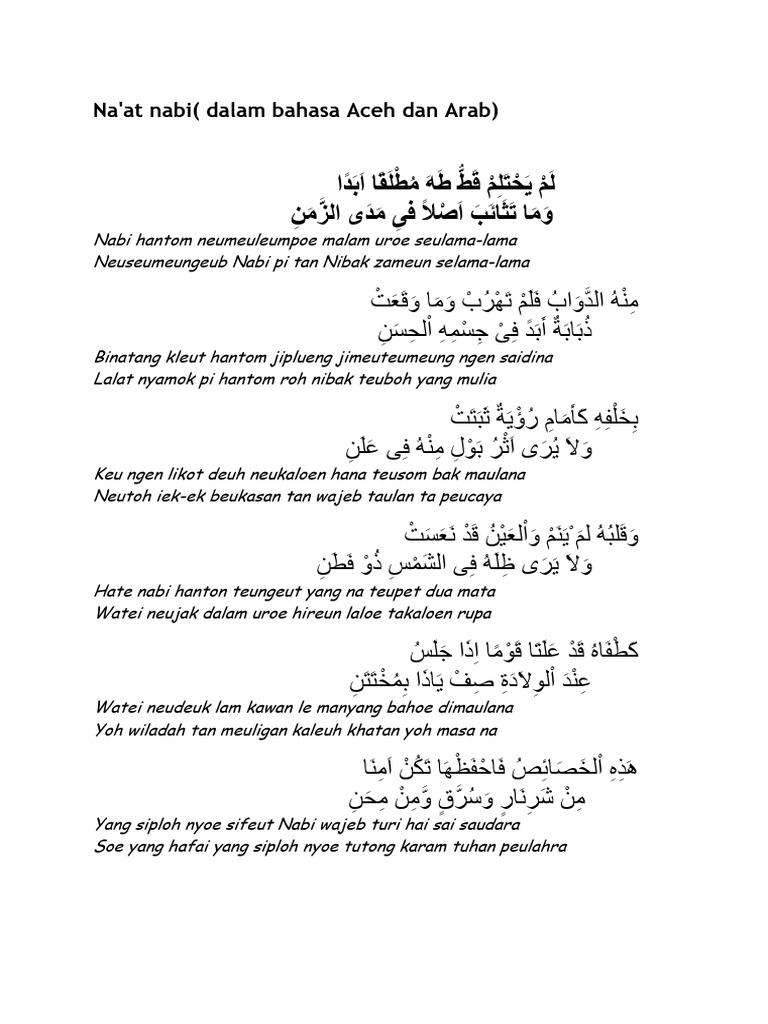 Na'at nabi( dalam bahasa Aceh dan Arab)
لَمْ يَحْتَلِمْ قَطُّ طَهَ مُطْلَقًا اَبَدًا
وَمَا تَثَائَبَ اَصْلاً فىِ مَدَى الزَّمَنِ
Nabi hantom neumeuleumpoe malam uroe seulama-lama
Neuseumeungeub Nabi pi tan Nibak zameun selama-lama
مِنْهُ الدَّوَابُ فَلَمْ تَهْرُبْ وَمَا وَقَعَتْ
ذُبَابَةٌ أَبَدً فِىْ جِسْمِهِ اْلحِسَنِ
Binatang kleut hantom jiplueng jimeuteumeung ngen saidina
Lalat nyamok pi hantom roh nibak teuboh yang mulia
بِخَلْفِهِ كَأَمَامِ رُؤْيَةٌ ثَبَتَتْ
وَلاَ يُرَى اَثْرُ بَوْلِ مِنْهُ فِى عَلَنِ
Keu ngen likot deuh neukaloen hana teusom bak maulana
Neutoh iek-ek beukasan tan wajeb taulan ta peucaya
وَقَلْبُهُ لَمَ ْيَنَمْ وَاْلعَيْنُ قَدْ نَعَسَتْ
وَلاَ يَرَى ظِلَهُ فِى الشَمْسِ ذُوْ فَطَنِ
Hate nabi hanton teungeut yang na teupet dua mata
Watei neujak dalam uroe hireun laloe takaloen rupa
كَطْفَاهُ قَدْ عَلَتَا قَوْمًا اِذَا جَلَسُ
عِنْدَ اْلوِلاَدَةِ صِفْ يَاذَا بِمُخْتَتَنِ
Watei neudeuk lam kawan le manyang bahoe dimaulana
Yoh wiladah tan meuligan kaleuh khatan yoh masa na
هَذِهِ اْلخَصَائِصُ فَاحْفَظْهَا تَكُنْ اَمِنَا
مِنْ شَرِنَارٍ وَسُرَّقٍ وَّمِنْ مِحَنِ
Yang siploh nyoe sifeut Nabi wajeb turi hai sai saudara
Soe yang hafai yang siploh nyoe tutong karam tuhan peulahra